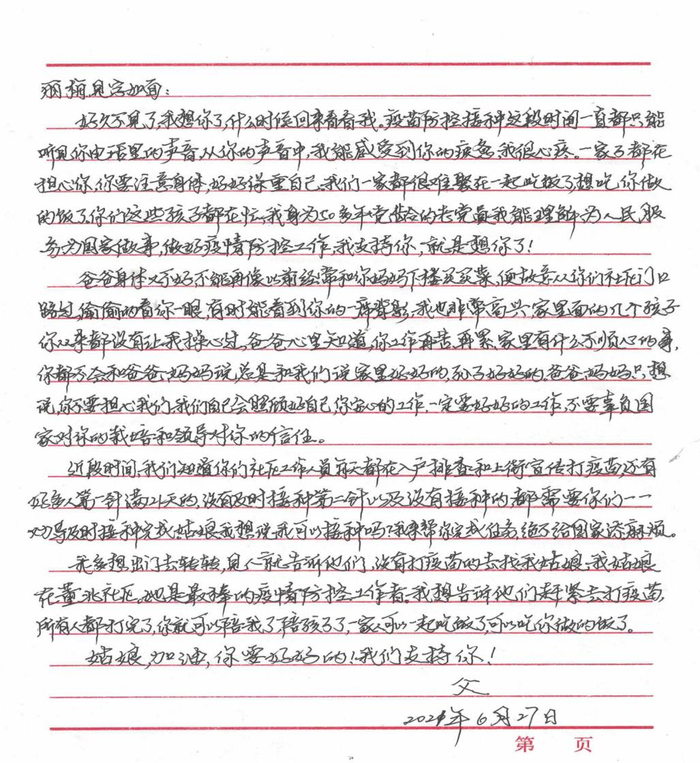 丽梅见字如面：
好久不见了，我想你了，什么时候回来看看我。疫苗防控接种这段时间一直都只能
听见你电话里的声音，从你的声音中，我能感受到你的疲惫，我很心疼。一家子都在
担心你，你要注意身体，好好保重自己，我们一家都很难聚在一起吃饭了，想吃你做
的饭了，你们这些孩子都在忙，我身为50多年党龄的老党员，我能理解，为人民服
务为国家做事，做好疫情防控工作，我支持你，就是想你了！
爸爸身体不好不能再像以前经常和你妈妈下楼买菜，便故意从你们社区门口
路过，偷偷的看你一眼，有时能看到你的一席背影，我也非常高兴，家里面的几个孩子
你从来都没有让我操心过，爸爸心里知道，你工作再苦、再累、家里有什么不顺心的事，
你都不会和爸爸、妈妈说，总是和我们说家里好好的，孙子好好的，爸爸、妈妈只想
说，你不要担心我们，我们自己会照顾好自己，你安心的工作，一定要好好的工作，不要辜负国
家对你的栽培和领导对你的信任。
近段时间，我们知道你们社区工作人员每天都在入户排查和上街宣传打疫苗，还有
好多人第一针满21天的，没有及时接种第二针以及没有接种的都需要你们一一
劝导及时接种完成，姑娘，我想说，我可以接种吗？我来帮你完成任务，绝不给国家添麻烦。
我多想出门去转转，见人就告诉他们，没有打疫苗的去找我姑娘，我姑娘
在董北社区，她是最棒的疫情防控工作者。我想告诉他们赶紧去打疫苗，
所有人都打完了，你就可以陪我了，陪孩子了，一家人可以一起吃饭了，可以吃你做的饭了。
姑娘，加油，你要好好的！我们支持你！
父
2021年6月27日
第 页